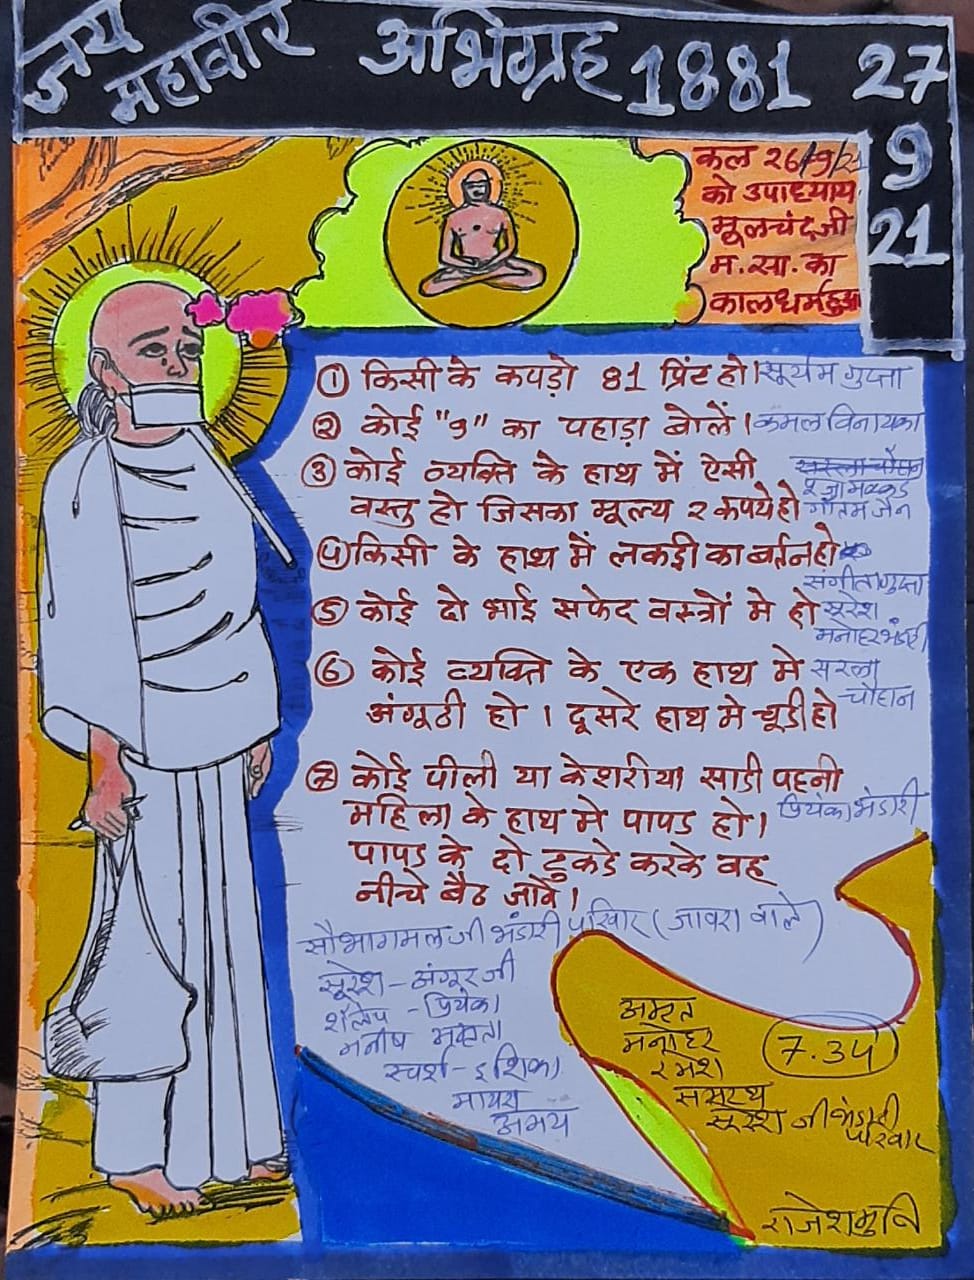 जय
महावीर
अभिग्रह 1881 27
9
21
कल 26/9/21
को उपाध्याय
मूलचंदजी
म. सा. का
कालधर्म हुआ
① किसी के कपड़ो 81 प्रिंट हो। सूर्यम गुप्ता
② कोई "9" का पहाड़ा बोलें। कमल विनायका
③ कोई व्यक्ति के हाथ में ऐसी
वस्तु हो जिसका मूल्य २ रूपये हो गौतम जैन
④ किसी के हाथ में लकड़ी का बर्तन हो
संगीता गुप्ता
⑤ कोई दो भाई सफेद वस्त्रों मे हो सुरेश
मनोहर भंडारी
⑥ कोई व्यक्ति के एक हाथ मे सरला
चौहान
अंगूठी हो । दूसरे हाथ मे चूडी हो
⑦ कोई पीली या केशरीया साडी पहनी
महिला के हाथ मे पापड हो। प्रियंका भंडारी
पापड के दो टुकडे करके वह
नीचे बैठ जावे।
सौभागमल जी भंडारी परिवार (जावरा वाले)
सुरेश - अंगूर जी
प्रियंका
मनीष
स्पर्श - इशिका
मायरा
अभय
अमृत
मनोहर
रमेश
समरथ
सुरेश जी भंडारी
परिवार
7.34
राजेशमुनि